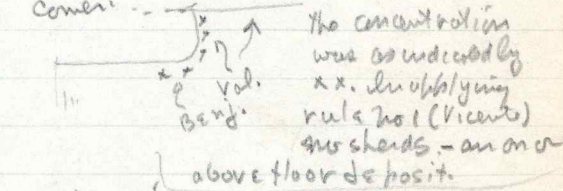 corner. --
the concentration
was as indicated by
xx. In applying
rule no 1 (Vicente)
no sherds. - an on or
above floor deposit.
Val.
Benj.